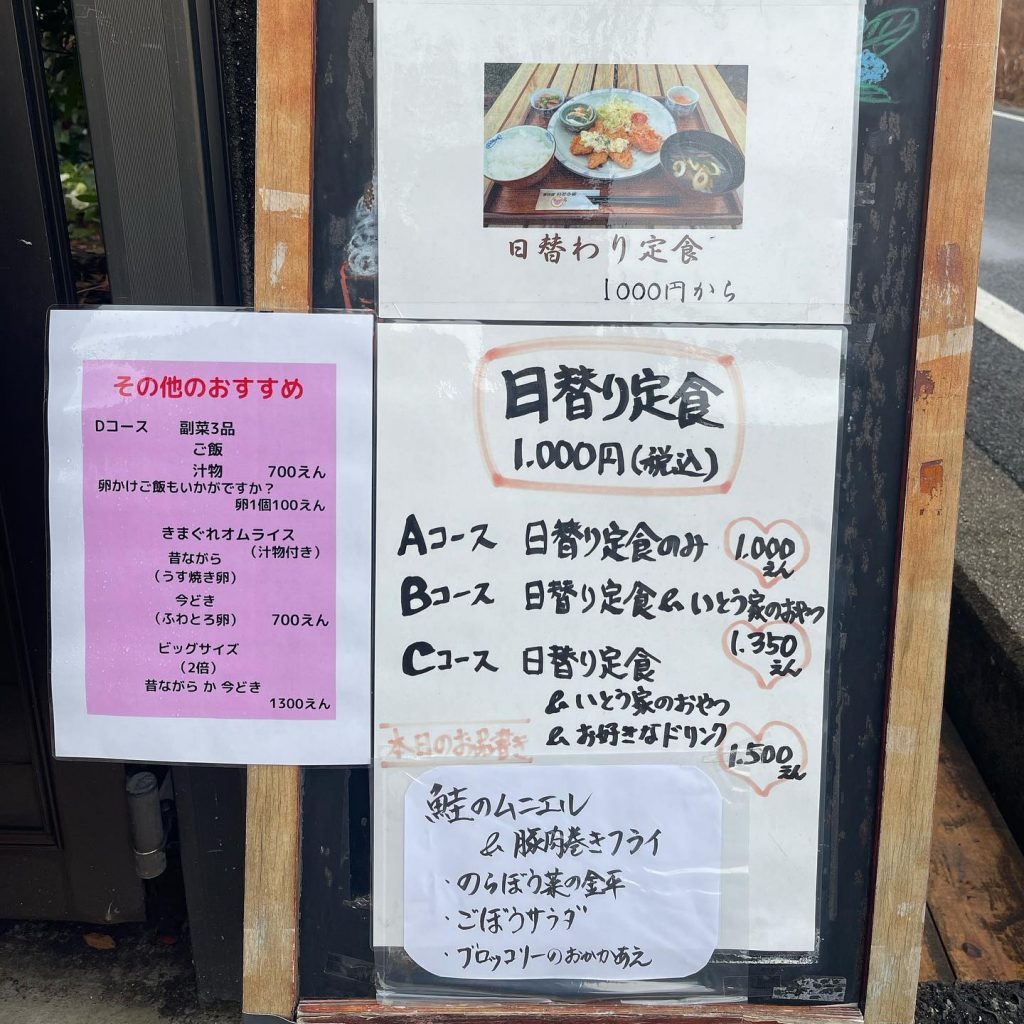 日替わり定食
1000円から
日替り定食
1.000円(税込)
Aコース 日替り定食のみ 1.000えん
Bコース 日替り定食&いとう家のおやつ
1.350えん
Cコース 日替り定食
&いとう家のおやつ
&お好きなドリンク
1.500えん
本日のお品書き
鮭のムニエル
&豚肉巻きフライ
・のらぼう菜の金平
・ごぼうサラダ
・ブロッコリーのおかかあえ
その他のおすすめ
Dコース 副菜3品
ご飯
汁物 700えん
卵かけご飯もいかがですか?
卵1個100えん
きまぐれオムライス
(汁物付き)
昔ながら
(うす焼き卵)
今どき
(ふわとろ卵) 700えん
ビッグサイズ
(2倍)
昔ながら か 今どき
1300えん